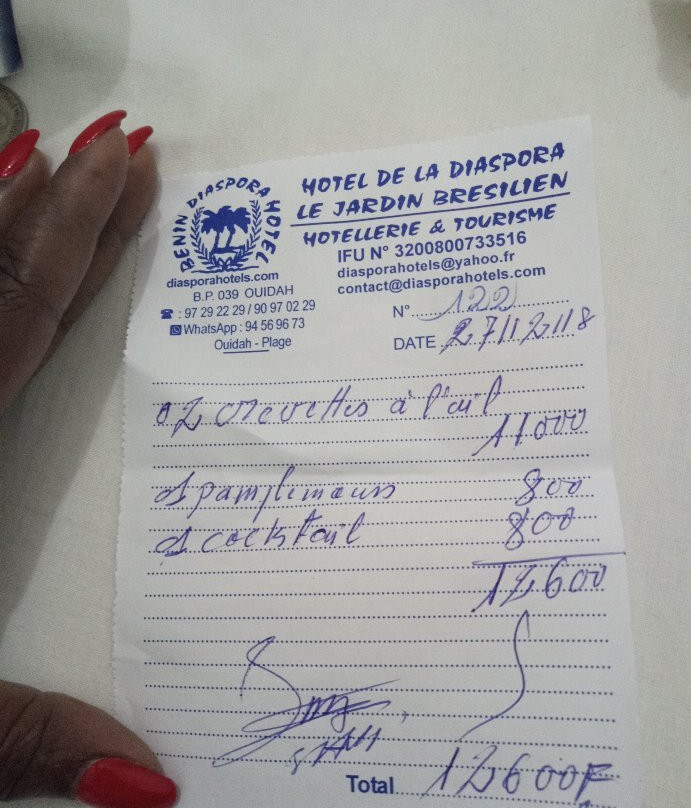 BENIN DIASPORA HOTEL
diasporahotels.com
B.P. 039 OUIDAH
: 97 29 22 29 / 90 97 02 29
WhatsApp : 94 56 96 73
Ouidah - Plage
HOTEL DE LA DIASPORA
LE JARDIN BRESILIEN
HOTELLERIE & TOURISME
IFU N° 3200800733516
diasporahotels@yahoo.fr
contact@diasporahotels.com
N° 122
DATE 27/12/18
02 crevettes à l'ail
11000
01 pamplemous 800
01 cocktail 800
12600
Total 12600F